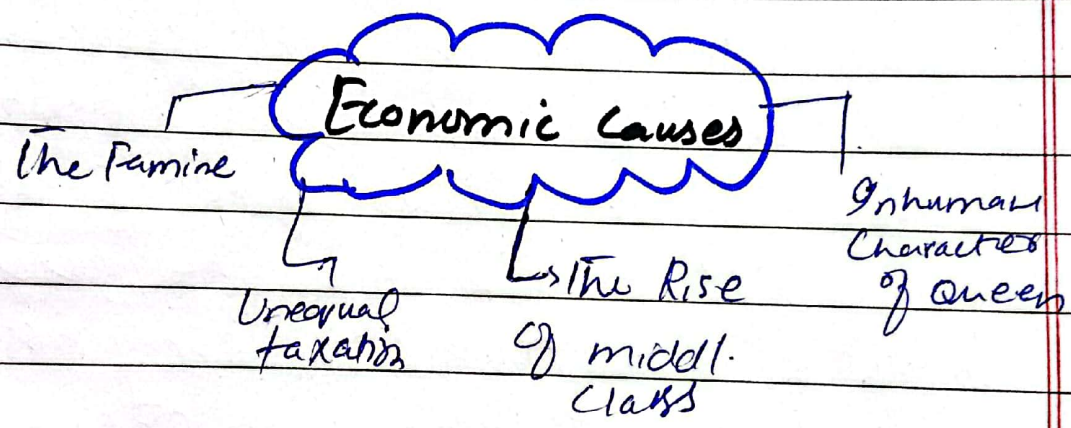 Economic Causes
The Famine
Unequal
taxation
The Rise
of middl.
class
Inhuman
Character
of Queen